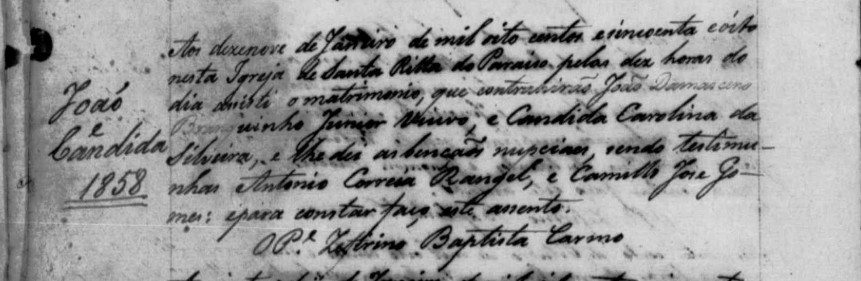 João
e
Candida
1858
Aos dezenove de Janeiro de mil oito centos e sincoenta e oito
nesta Igreja de Santa Ritta do Paraiso pelas dez horas do
dia assisti o matrimonio, que contrahirão João Damasceno
Branquinho Junior Viuvo, e Candida Carolina da
Silveira, e lhe dei as bençãos nupciaes, sendo testimu-
nhas Antonio Correia Rangel, e Camillo Jose Go-
mes: e para constar faço este assento.
O Pe. Zeferino Baptista Carmo